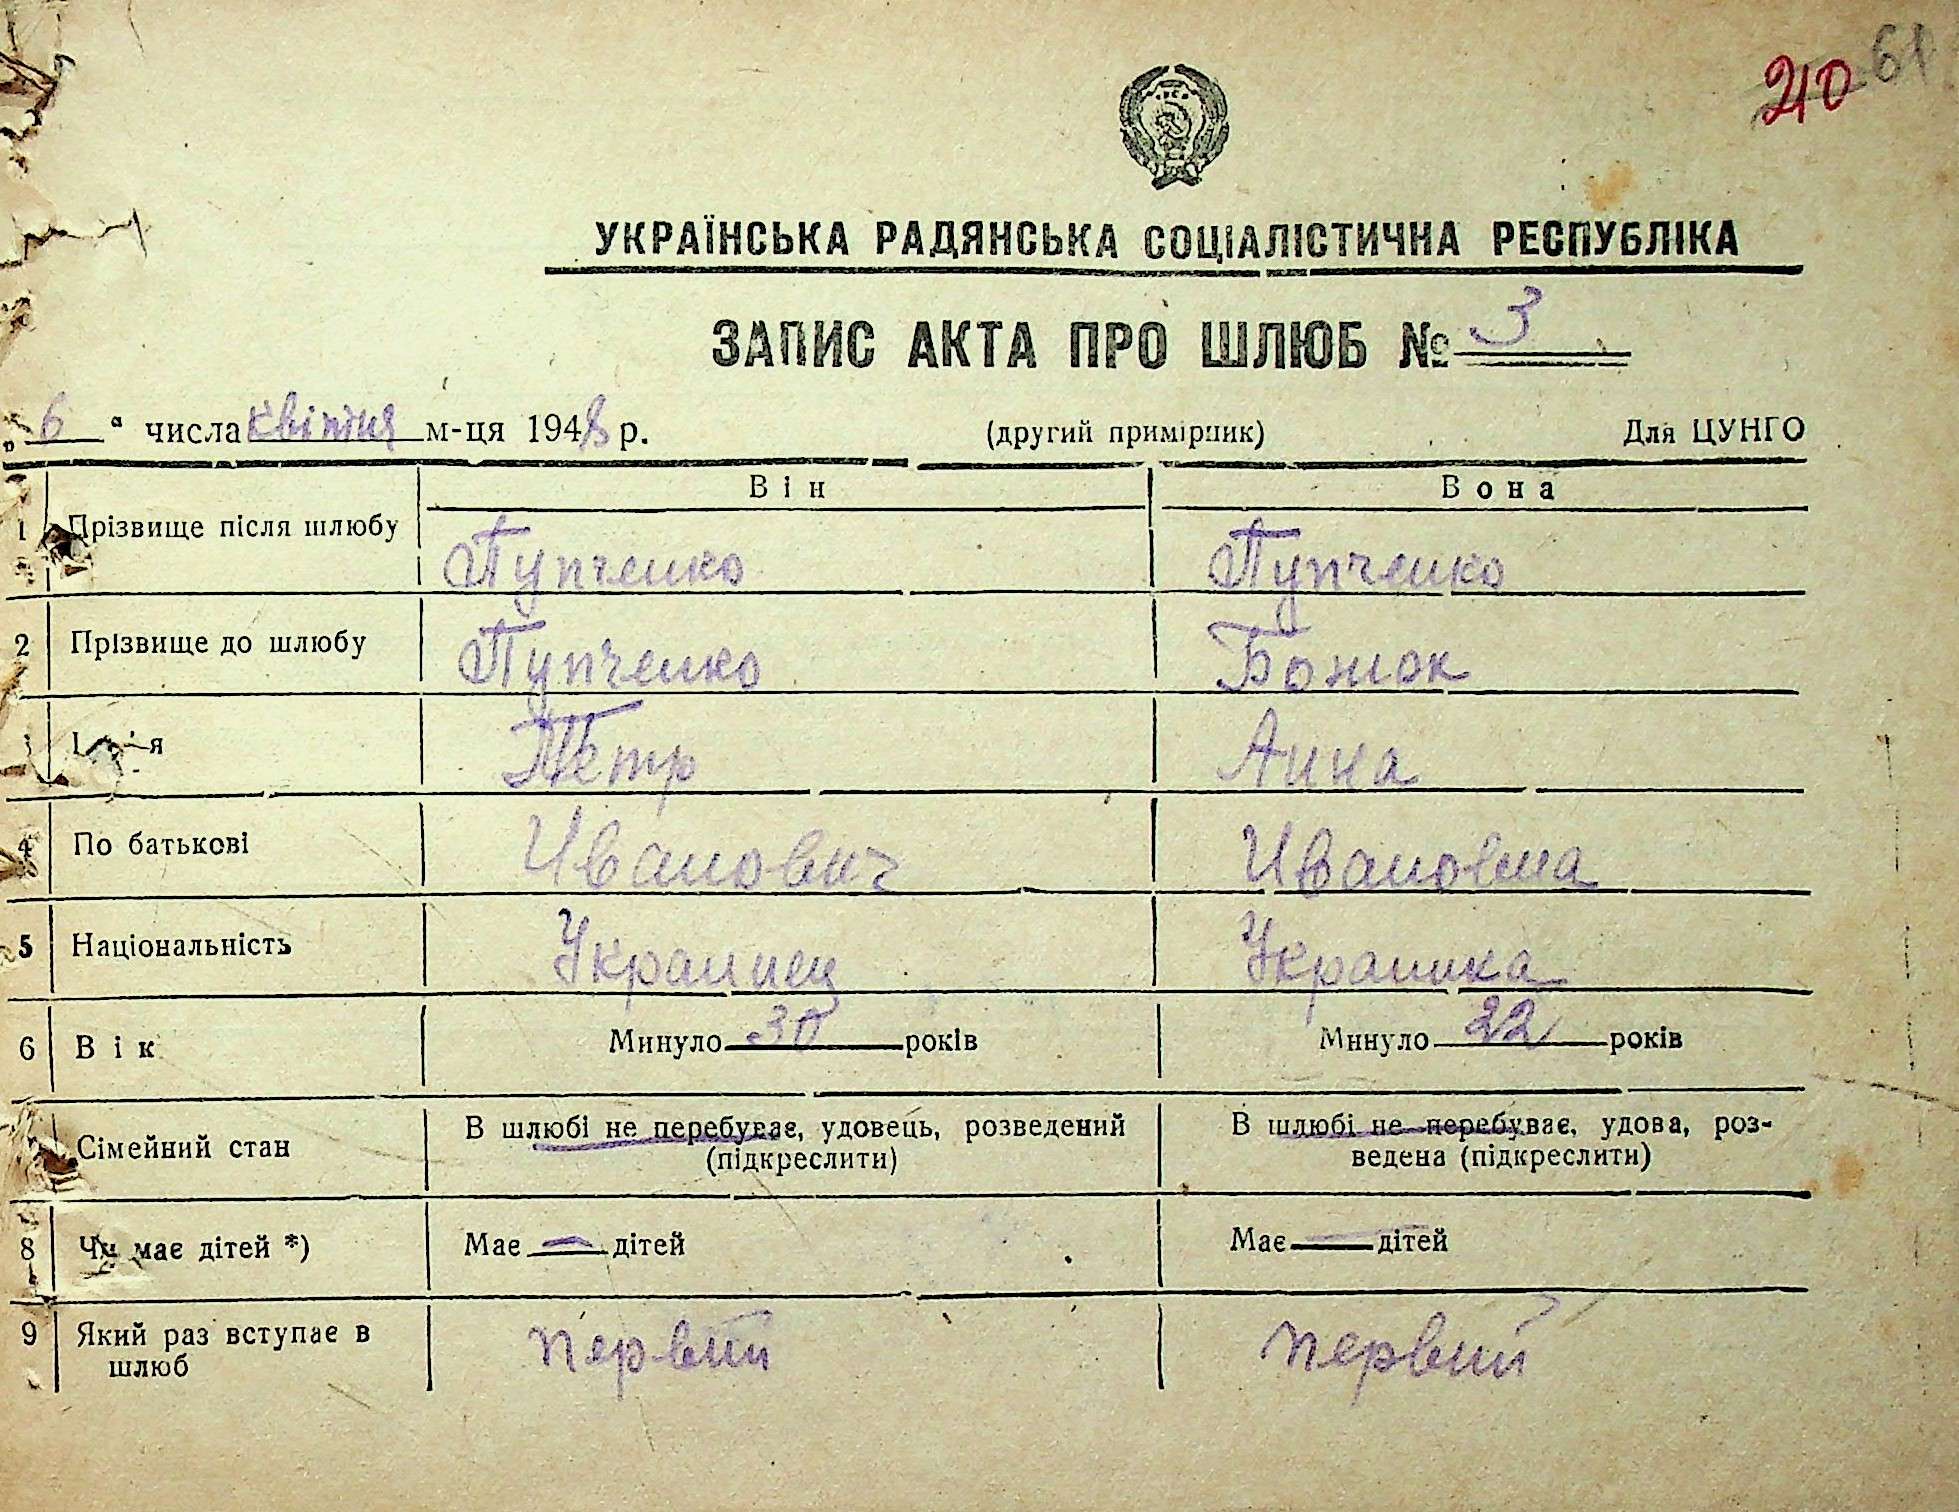 210 61
УКРАЇНСЬКА РАДЯНСЬКА СОЦІАЛІСТИЧНА РЕСПУБЛІКА
ЗАПИС АКТА ПРО ШЛЮБ № 3
„ 6 “ числа квітня м-ця 1948 р. (другий примірник) Для ЦУНГО
Він Вона
1 Прізвище після шлюбу Пупченко Пупченко
2 Прізвище до шлюбу Пупченко Божок
Ім'я Петр Анна
4 По батькові Иванович Ивановна
5 Національність Украинец Украинка
6 Вік Минуло 30 років Минуло 22 років
Сімейний стан В шлюбі не перебуває, удовець, розведений (підкреслити) В шлюбі не перебуває, удова, роз-
ведена (підкреслити)
8 Чи має дітей *) Має — дітей Має — дітей
9 Який раз вступає в шлюб первий первий